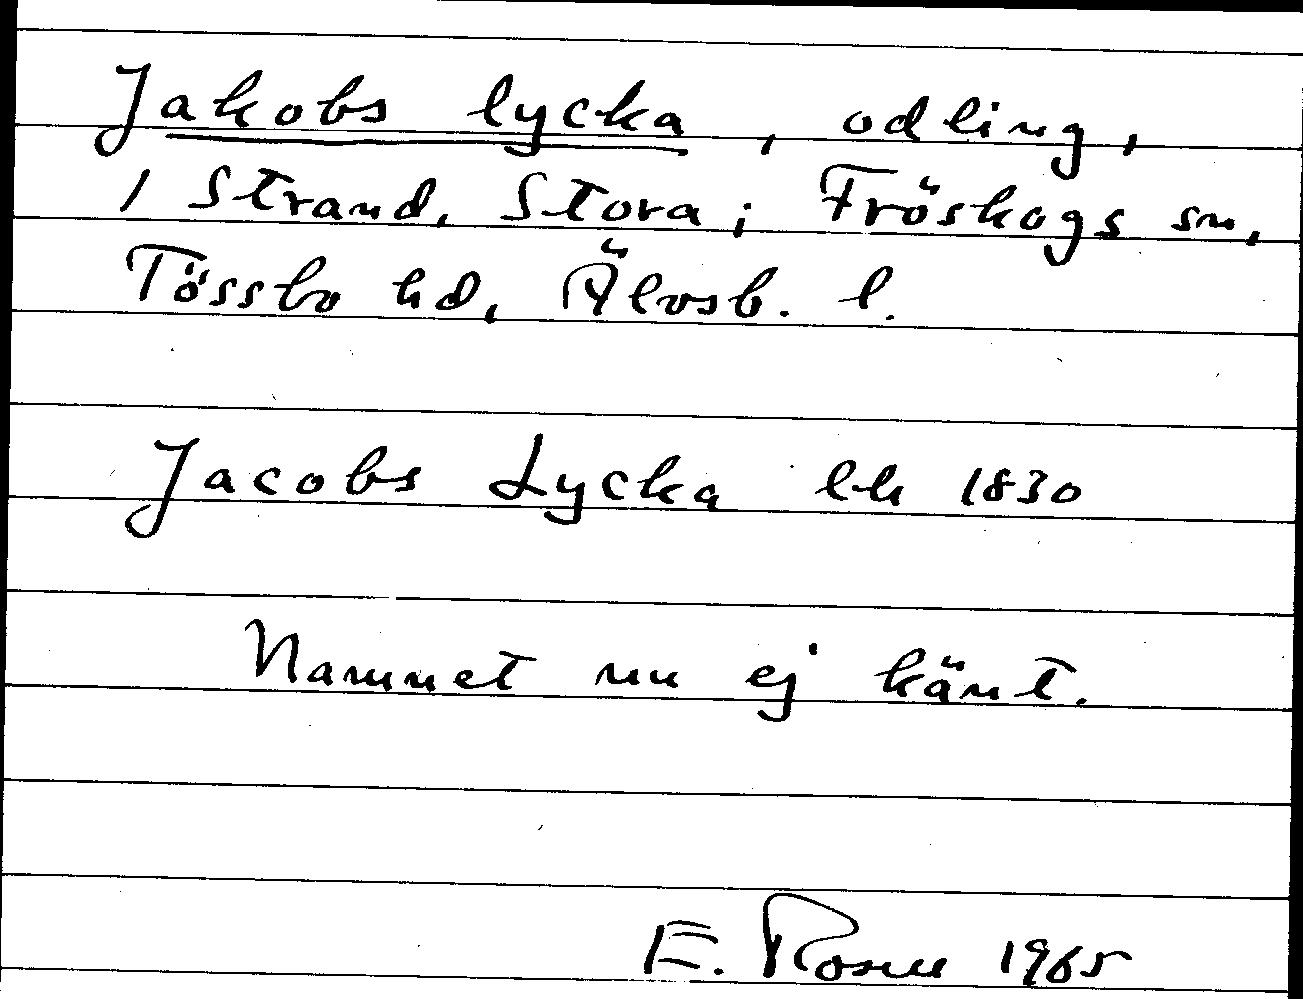 Jakobs lycka, odling,
1 Strand, Stora; Fröskogs sn,
Tössbo hd, Älvsb. l.
Jacobs Lycka lh 1830
Namnet nu ej känt.
E. Rosell 1965